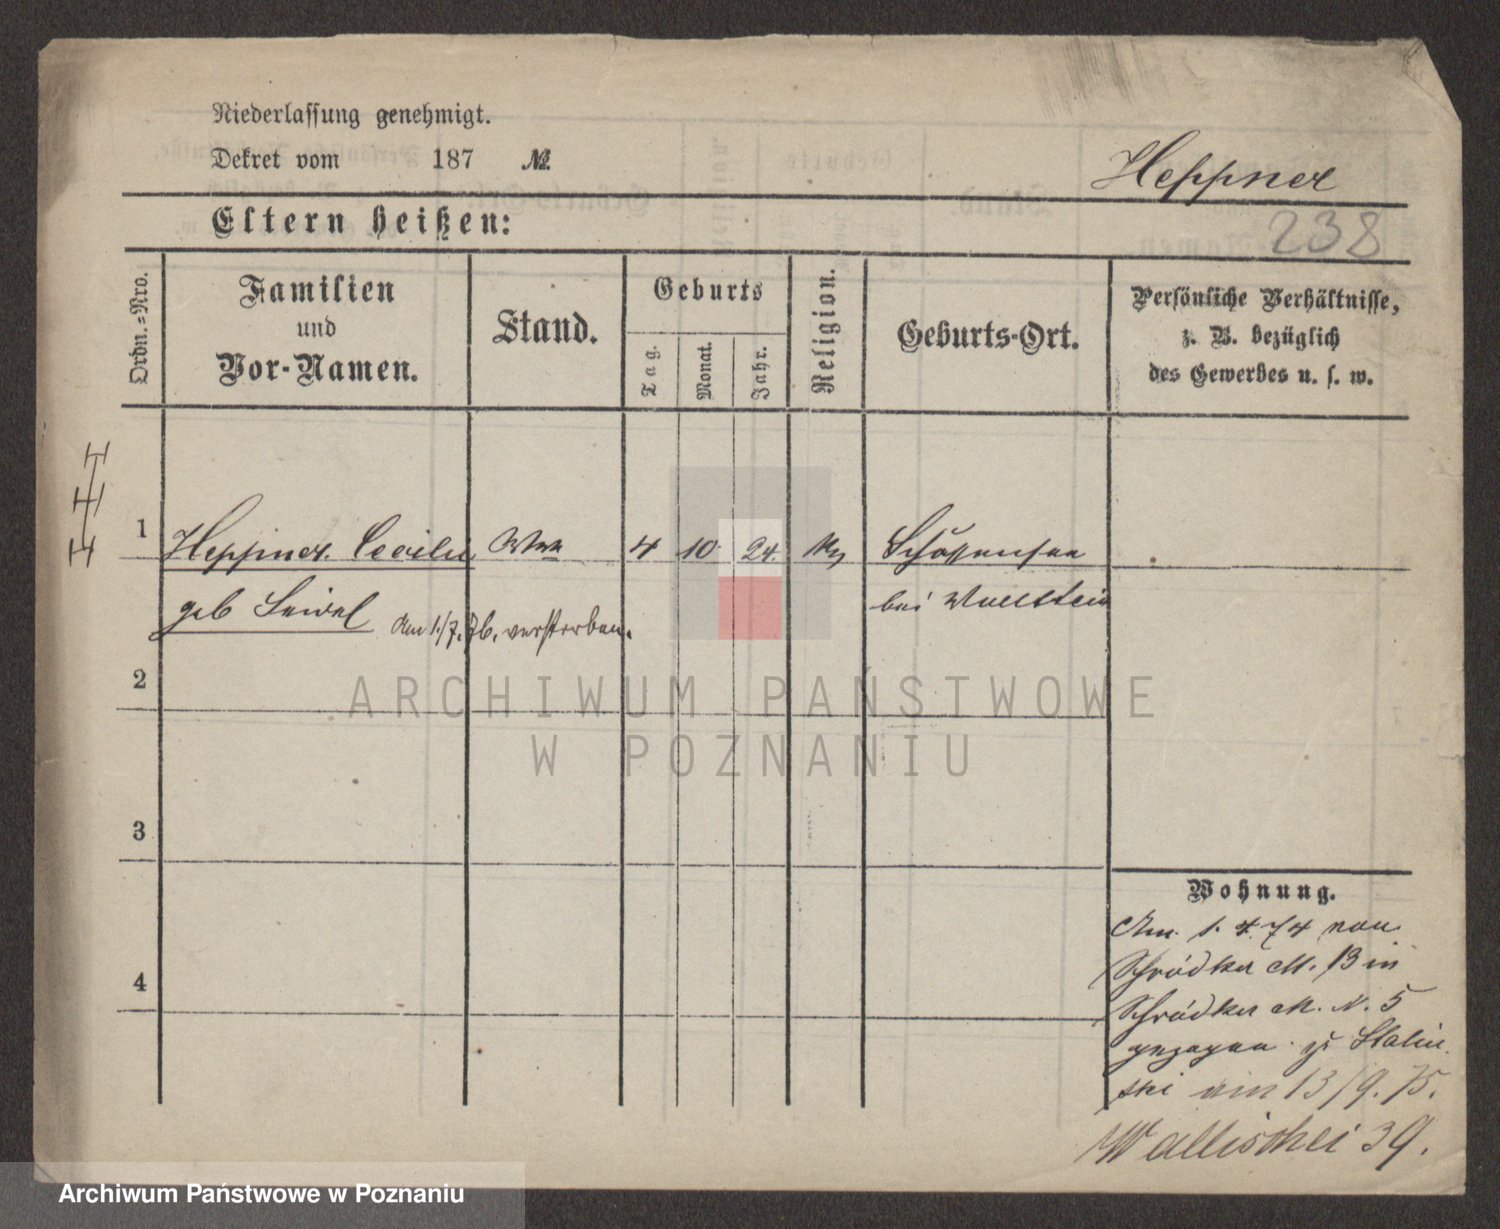 Niederlassung genehmigt.
Dekret vom 187 №
Heppner
238
Eltern heißen:
Ordn.=Nro.
Familien
und
Vor-Namen.
Stand.
Geburts
Tag.
Monat.
Jahr.
Religion.
Geburts-Ort.
Persönliche Verhältnisse,
z. B. bezüglich
des Gewerbes u. s. w.
1 Heppner Cecilie 4 10. 24.
geb bei Wollstein
Am 1./7. 76. verstorben.
2
3
4
Wohnung.
Am 1. 4. 74 von
Schrodka M. 13 in
Schrodka M. N. 5
gezogen zu Stalin
ski am 13/9. 75.
Wallischei 39.
ARCHIWUM PAŃSTWOWE
W POZNANIU
Archiwum Państwowe w Poznaniu